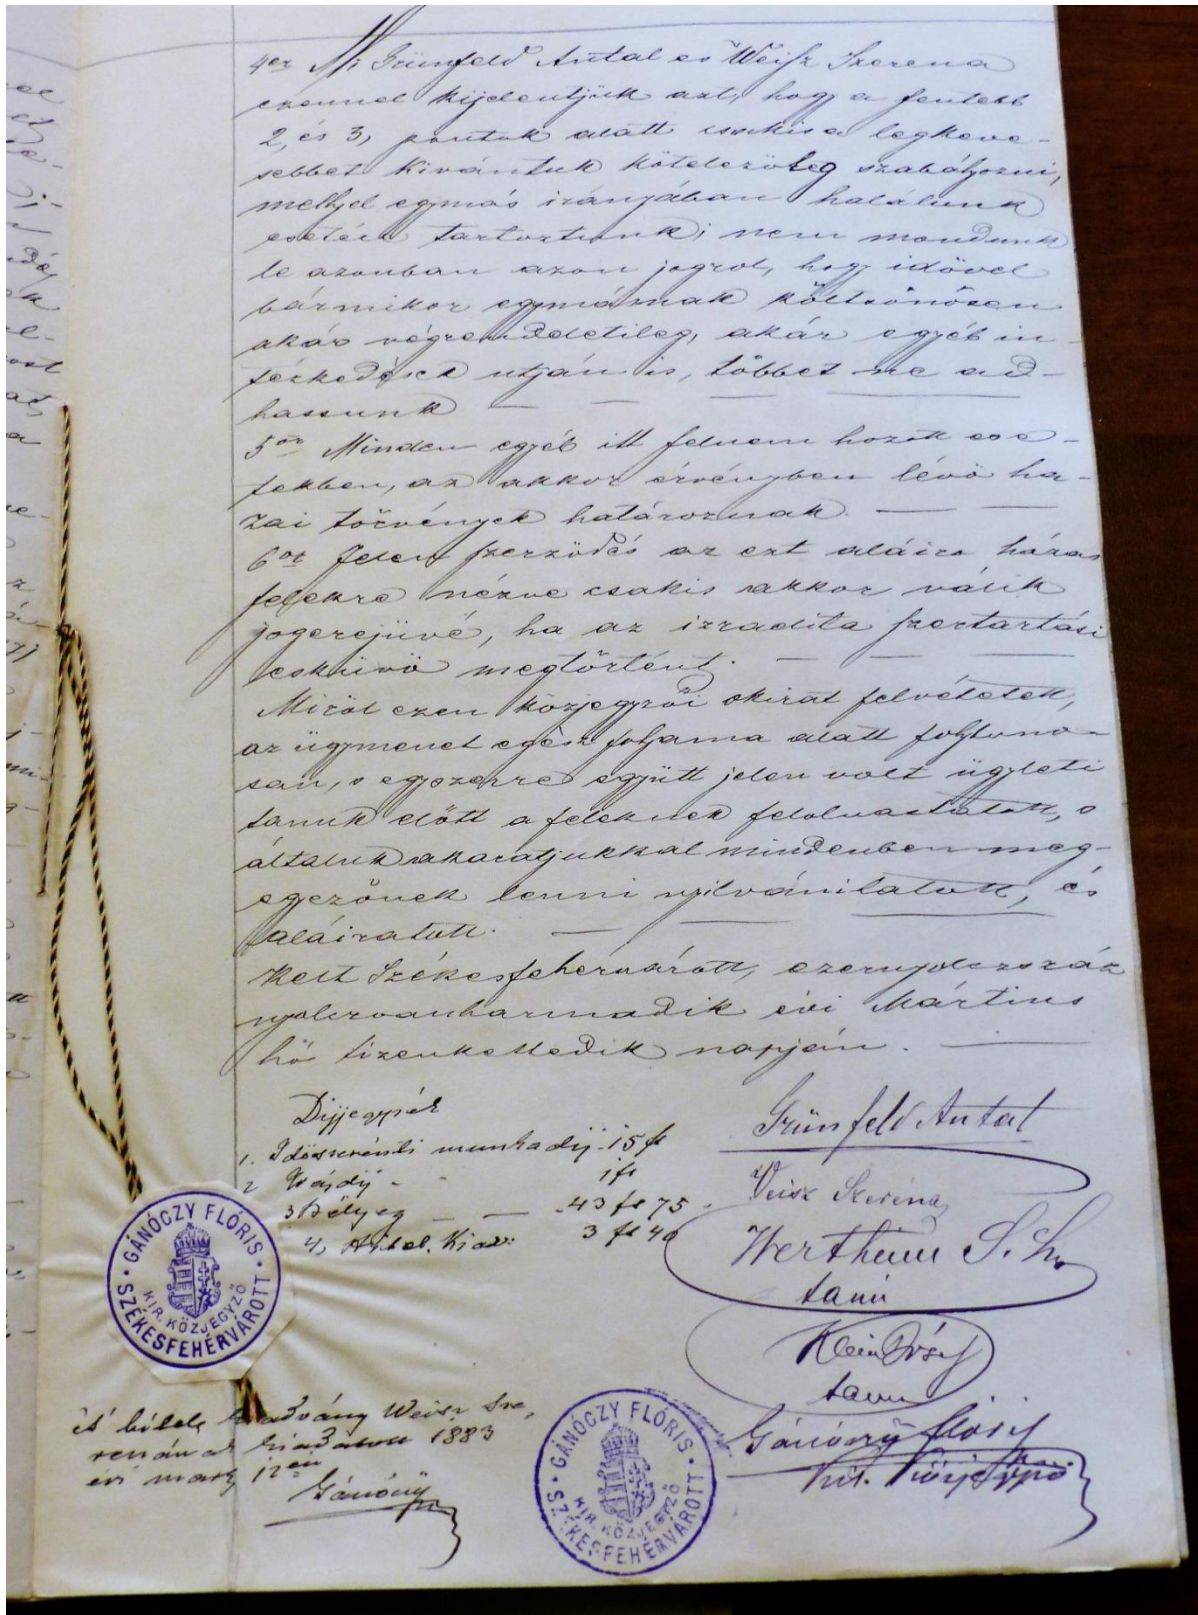 4er Mi Grünfeld Antal és Weisz Szerena
ezennel kijelentjük azt, hogy a fentebb
2, és 3, pontok alatt csakis a legkeve-
sebbet kivántuk kötelezöleg szabályozni,
mellyel egymás irányában halálunk
esetére tartoztunk; nem mondunk
le azonban azon jogrol, hogy idövel
bármikor egymásnak költsönösen
akár végrendeletileg, akár egyéb in-
tézkedések utján is, többet ne ad-
hassunk
5ör Minden egyéb itt fel nem hozott ese-
tekben, az akkor érvényben lévö ha-
zai törvények határoznak.
6or Jelen szerzödés az ezt aláiro házas
felekre nézve csakis akkor válik
jogerejüvé, ha az izraelita szertartási
esküvö megtörtént.
Miröl ezen közjegyzöi okirat felvétetett,
az ügymenet egész folyama alatt folytono-
san, s egyszerre együtt jelen volt ügyleti
tanuk elött a feleknek felolvastatott, s
általuk akaratjukkal mindenben meg-
egyezönek lenni nyilvánitatott, és
aláiratott.
Kelt Székesfehérvárott, ezernyolczszáz
nyolczvanharmadik évi Mártius
hó tizenkettedik napján.
Dijjegyzék
1. Idöszerénti munkadij 15 ft
2 Irásdij - - 1 ft
3 Bélyeg - - 43 ft 75
4, Hitel. Kiad: 3 ft 40
Grünfeld Antal
Veisz Szeréna
Wertheim S.
tanu
Klein József
tanu
Gánóczy Flóris
kir. közjegyző
GÁNÓCZY FLÓRIS
KIR. KÖZJEGYZŐ
SZÉKESFEHÉRVÁROTT
kiadvány Weisz Sze-
renának kiadatott 1883
évi márz 12én
Gánóczy
GÁNÓCZY FLÓRIS
KIR. KÖZJEGYZŐ
SZÉKESFEHÉRVÁROTT